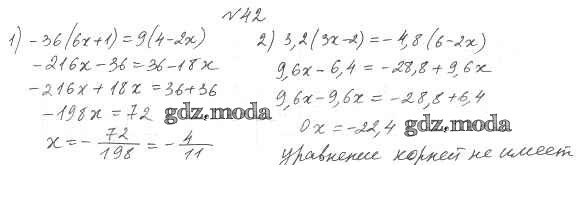 №42
1) -36(6x+1)=9(4-2x)
-216x-36=36-18x
-216x+18x=36+36
-198x=72 gdz.moda
x=-72/198=-4/11
2) 3,2(3x-2)=-4,8(6-2x)
9,6x-6,4=-28,8+9,6x
9,6x-9,6x=-28,8+6,4
0x=-22,4 gdz.moda
уравнение корней не имеет